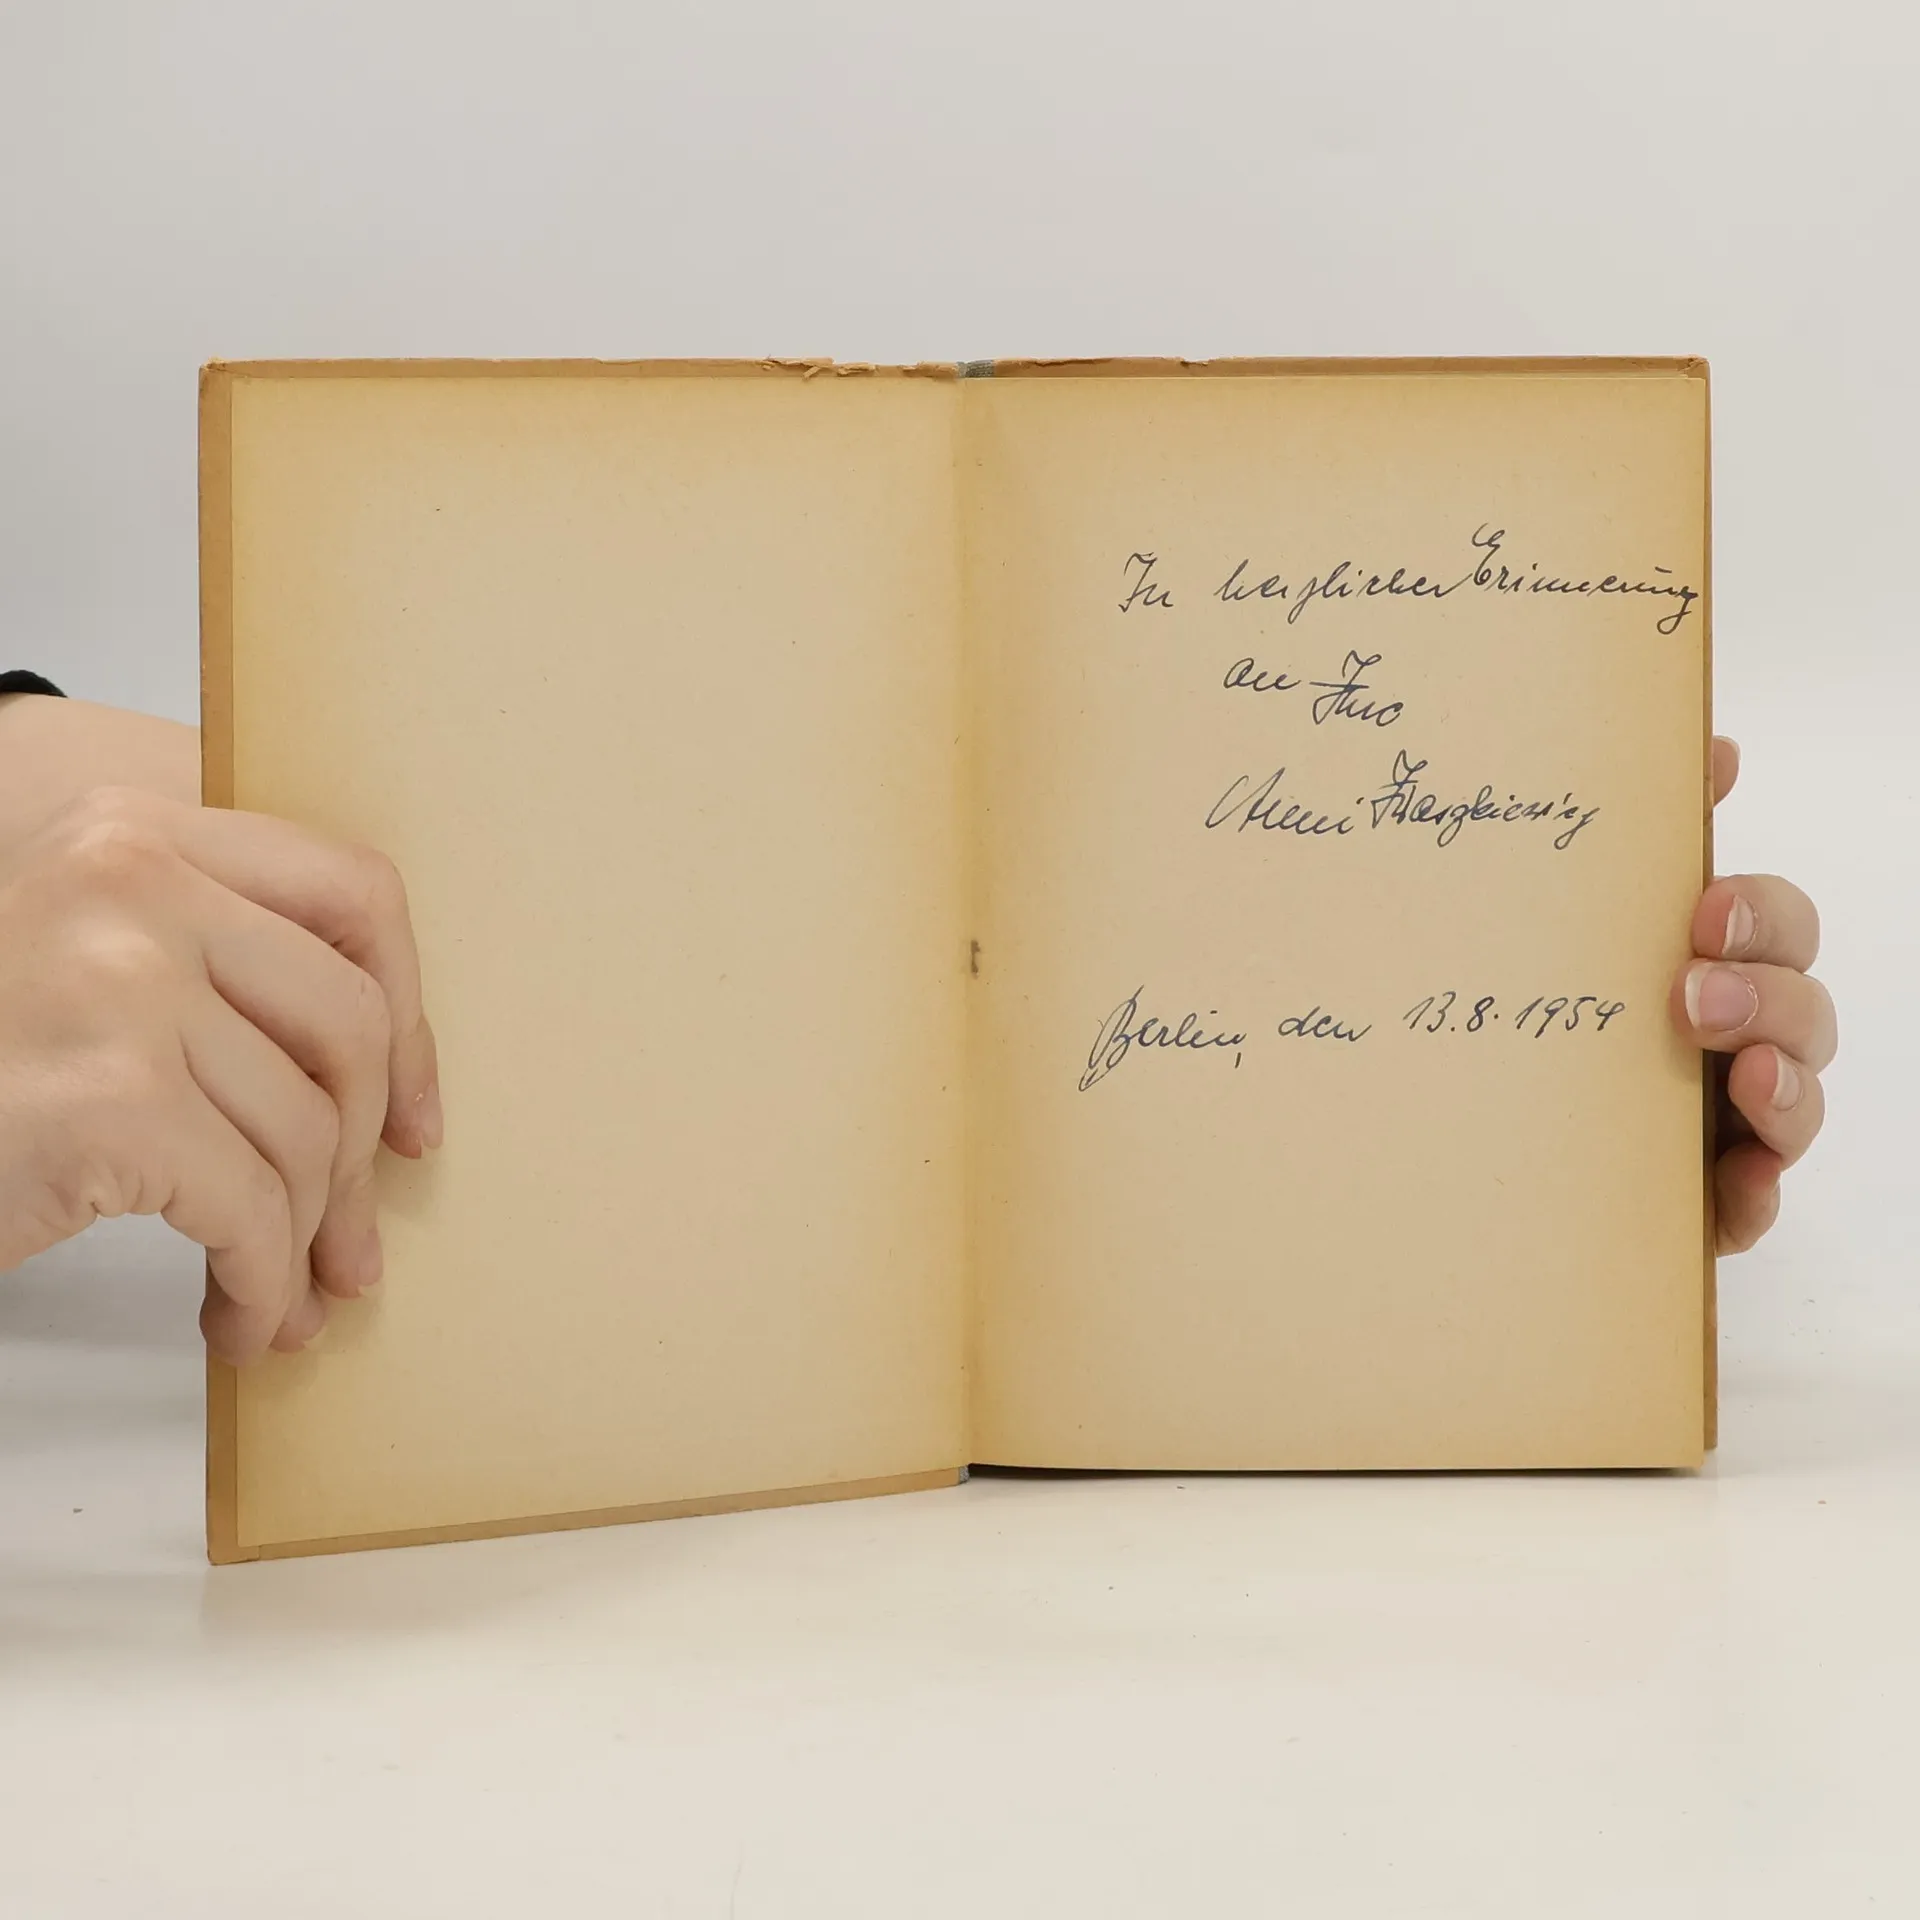 In herzlicher Erinnerung
an Ihre
Anni
Berlin, den 13.8.1954